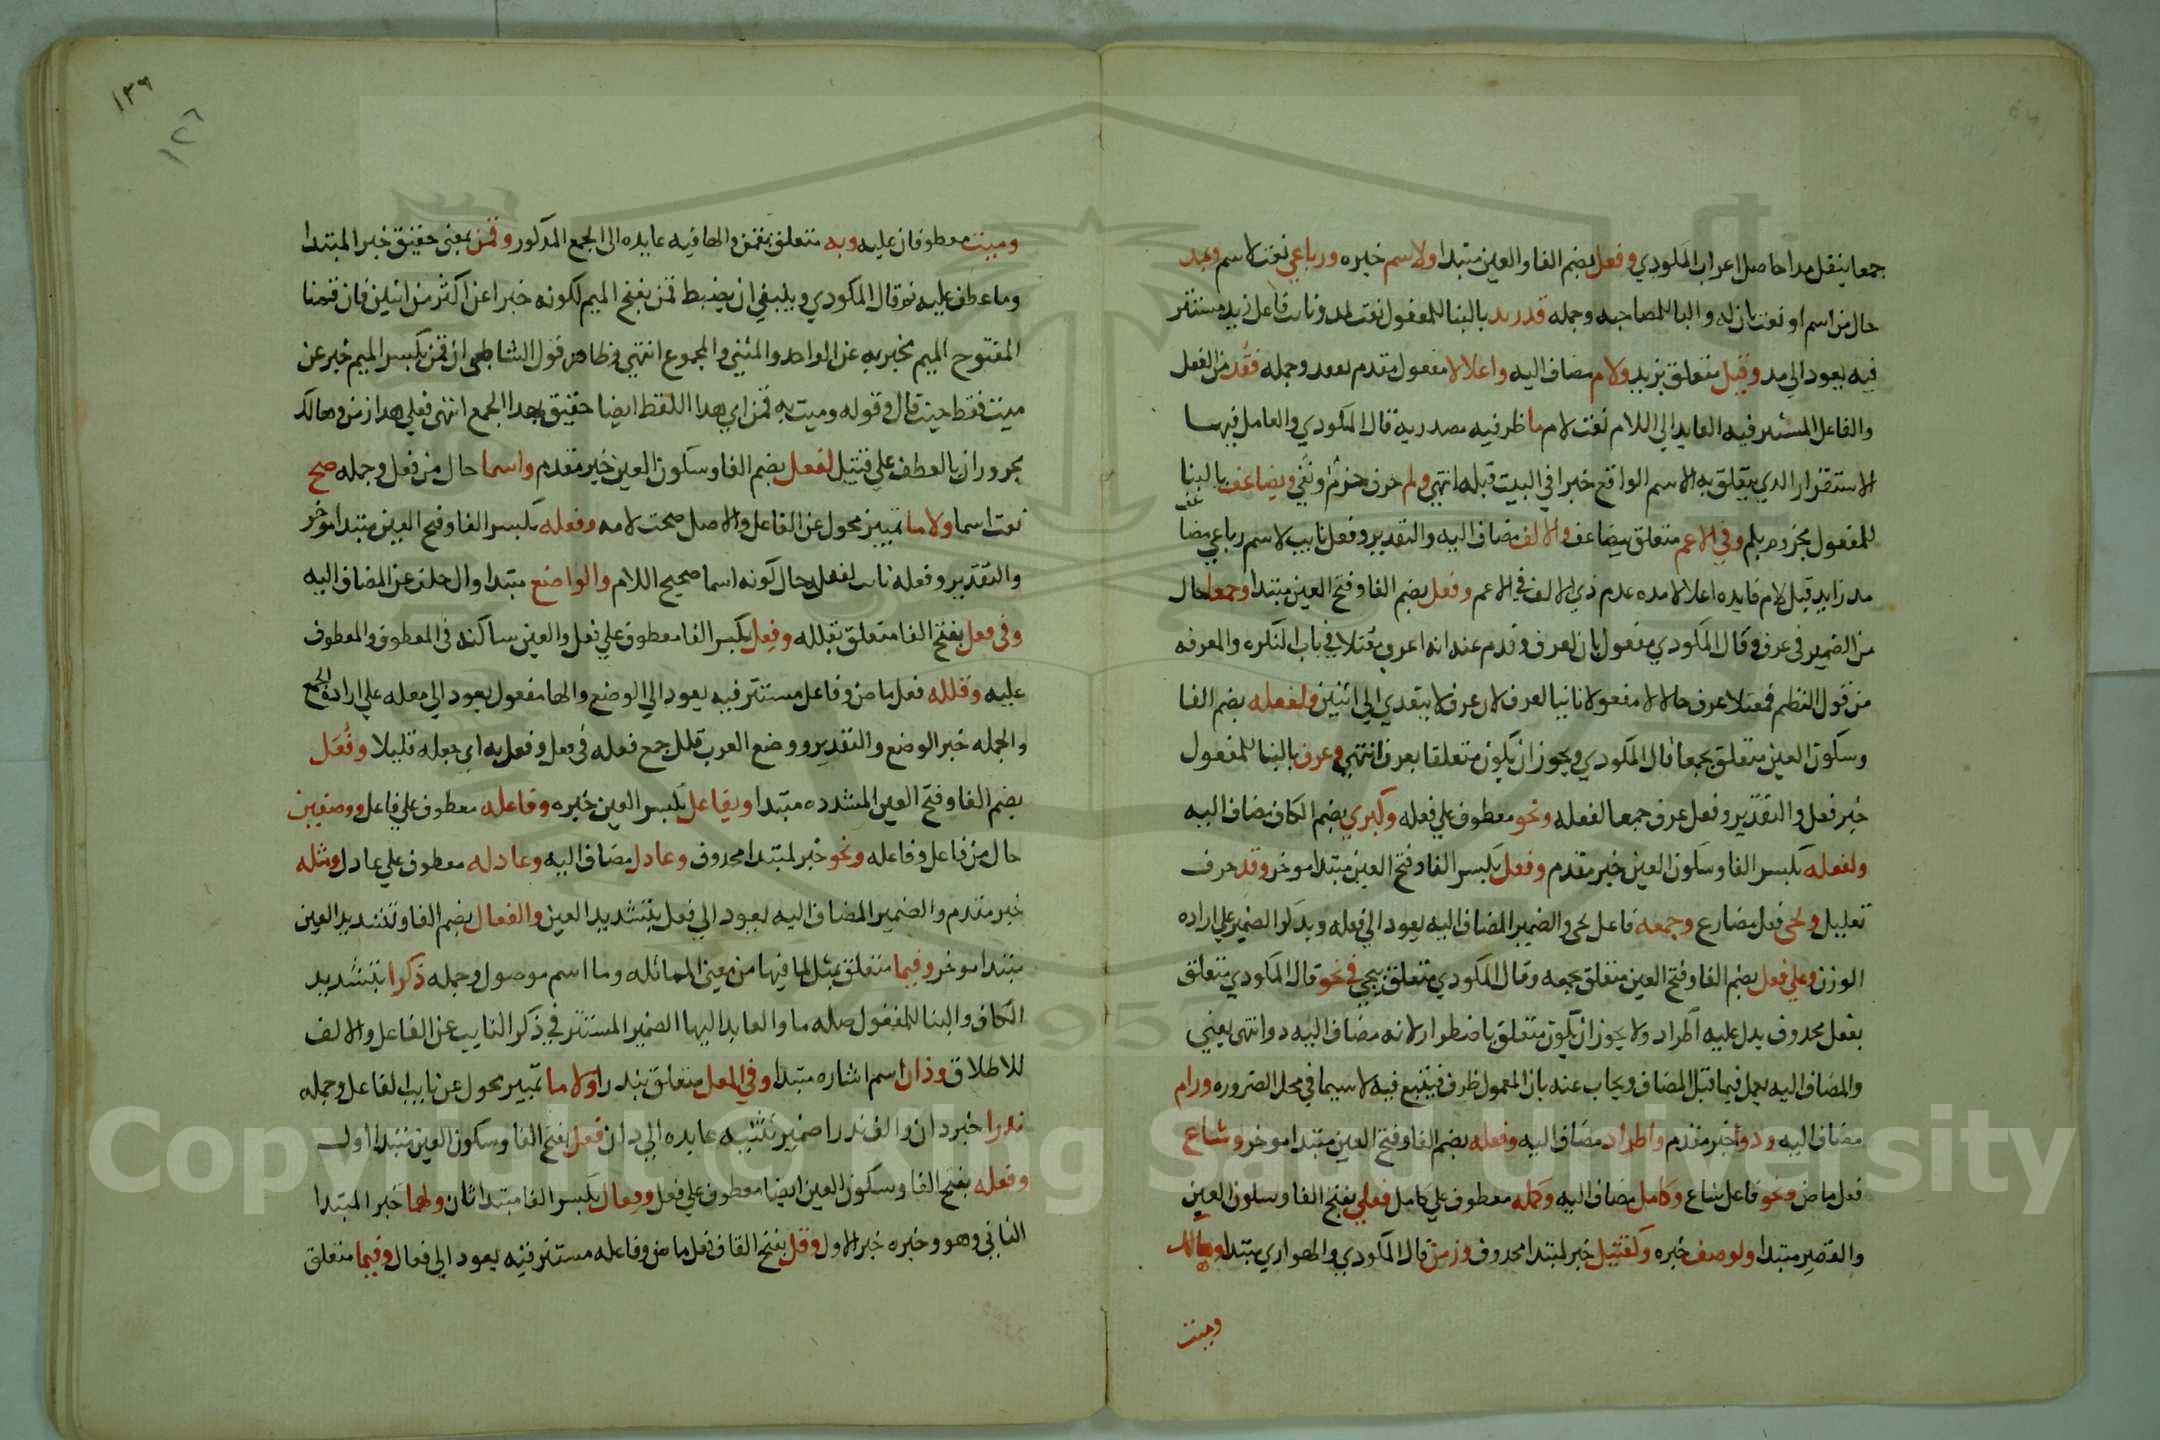 جمعا ينقل مدا حاصل اعراب المكودي وفعل بضم الفا والعين مبتدا ولاسم خبره ورباعي نعت لاسم وبمد
حال من اسم او نعت ثان له والبا للمصاحبه وجمله قد زيد بالبنا للمفعول نعت لمد ونايب فاعل زيد مستتر
فيه يعود الي مد وقبل متعلق بزيد ولام مضاف اليه واعلالا مفعول مقدم بفقد وجمله فقد من الفعل
والفاعل المستتر فيه العايد الي اللام نعت لام ما ظرفيه مصدرية قال المكودي والعامل فيها
الاستقرار الذي يتعلق به لاسم الواقع خبرا في البيت قبله انتهي ولم حرف جزم ونفي ويضاعف بالبنا
للمفعول مجزوم بلم وفي الاعم متعلق بيضاعف والالف مضاف اليه والتقدير وفعل نايب لاسم رباعي مضا
مد زايد قبل لام فايده اعلالا مده عدم ذي الالف في الاعم وفعل بضم الفا وفتح العين مبتدا وجمعا حال
من الضمير في عرف وقال المكودي مفعول ثان لعرف وقدم عنه انه اعرب مفتلا في باب النكره والمعرفه
من قول النظم فمعتلا عرف حالا لا مفعولا ثانيا لعرف لان عرف لا يتعدي الي اثنين ولفعله بضم الفا
وسكون العين متعلق بجمعا قال المكودي ويجوز ان يكون متعلقا بعرف انتهي وعرف بالبنا للمفعول
خبر فعل والتقدير وفعل عرف جمعا لفعله ونحو معطوف علي فعله وكبري بضم الكاف مضاف اليه
ولفعله بكسر الفا وسكون العين خبر مقدم وفعل بكسر الفا وفتح العين مبتدا موخر وقد حرف
تقليل ويجي فعل مضارع وجمعه فاعل يجي والضمير المضاف اليه يعود الي فعله وبدكر الضمير علي اراده
الوزن وعلي فعل بضم الفا وفتح العين متعلق بجمعه وقال المكودي متعلق بيجي في نحو قال المكودي متعلق
بفعل محدوف يدل عليه اطراد ولا يجوز ان يكون متعلق باضطرار لانه مضاف اليه دو انتهي يعني
والمضاف اليه يعمل فيما قبل المضاف ويجاب عنه بان المعمول ظرف فيتسع فيه لا سيما في محل الضروره ورام
مضاف اليه ودو خبر مقدم واطراد مضاف اليه وفعله بضم الفا وفتح العين مبتدا موخر وشاع
فعل ماض ونحو فاعل شاع وكامل مضاف اليه وكمله معطوف علي كامل فعلي بفتح الفا وسكون العين
والقصير مبتدا ولوصف خبره وكقتيل خبر لمبتدا محدوف وزمن قال المكودي والهواري مبتدا وهالك
وميت
١٣٦
١٢٦
وميت معطوفان عليه وبه متعلق بقمن والها فيه عايده الي الجمع المدكور وقمن بمعني حقيق خبر المبتدا
وما عطف عليه نو قال المكودي وينبغي ان يضبط قمن بفتح الميم لكونه خبرا عن اكثر من اثنين فان قمنا
المفتوح الميم يخبر به عن الواحد والمثني والمجموع انتهي وظاهر قول الشاطبي ان قمن بكسر الميم خبر عن
ميت فقط حيث قال وقوله وميت به قمن اي هدا اللفظ ايضا حقيق بهدا الجمع انتهي فعلي هدا زمن وهالك
مجروران بالعطف علي قتيل لفعل بضم الفا وسكون العين خبر مقدم واسما حال من فعل وجمله صح
نعت اسما ولاما تمييز محول عن الفاعل والاصل صحت لامه وفعله بكسر الفا وفتح العين مبتدا موخر
والتقدير وفعله ثابت لفعل حال كونه اسما صحيح اللام والوضع مبتدا وال خلف عن المضاف اليه
وفي فعل بفتح الفا متعلق بقلله وفعل بكسر الفا معطوف علي فعل والعين ساكنه في المعطوف والمعطوف
عليه وقلله فعل ماض وفاعل مستتر فيه يعود الي الوضع والها مفعول يعود الي فعله علي ارادة الجمع
والجمله خبر الوضع والتقدير ووضع العرب قلل جمع فعله في فعل وفعل به اي جعله قليلا وفُعَّل
بضم الفا وفتح العين المشدده مبتدا وبفاعل بكسر العين خبره وفاعله معطوف علي فاعل ووصفين
حال من فاعل وفاعله ونحو خبر لمبتدا محدوف وعادل مضاف اليه وعادله معطوف علي عادل ومثله
خبر مقدم والضمير المضاف اليه يعود الي فعل بتشديد العين والفعال بضم الفا وتشديد العين
مبتدا موخر وفيما متعلق بمثل لما فيها من معني المماثله وما اسم موصول وجمله ذكرا بتشديد
الكاف والبنا للمفعول صله ما والعايد اليها الضمير المستتر في ذكر النايب عن الفاعل والالف
للاطلاق وذان اسم اشاره مبتدا وفي المعل متعلق بندرا ولاما تمييز محول عن نايب الفاعل وجمله
ندرا خبر دان والف ندرا ضمير تثنيه عايده الي دان فعل بفتح الفا وسكون العين مبتدا اول
وفعله بفتح الفا وسكون العين ايضا معطوف علي فعل وفعال بكسر الفا مبتدا ثان ولهما خبر المبتدا
الثاني وهو وخبره خبر الاول وقل بفتح القاف فعل ماض وفاعله مستتر فيه يعود الي فعال وفيما متعلق
Copyright © King Saud University